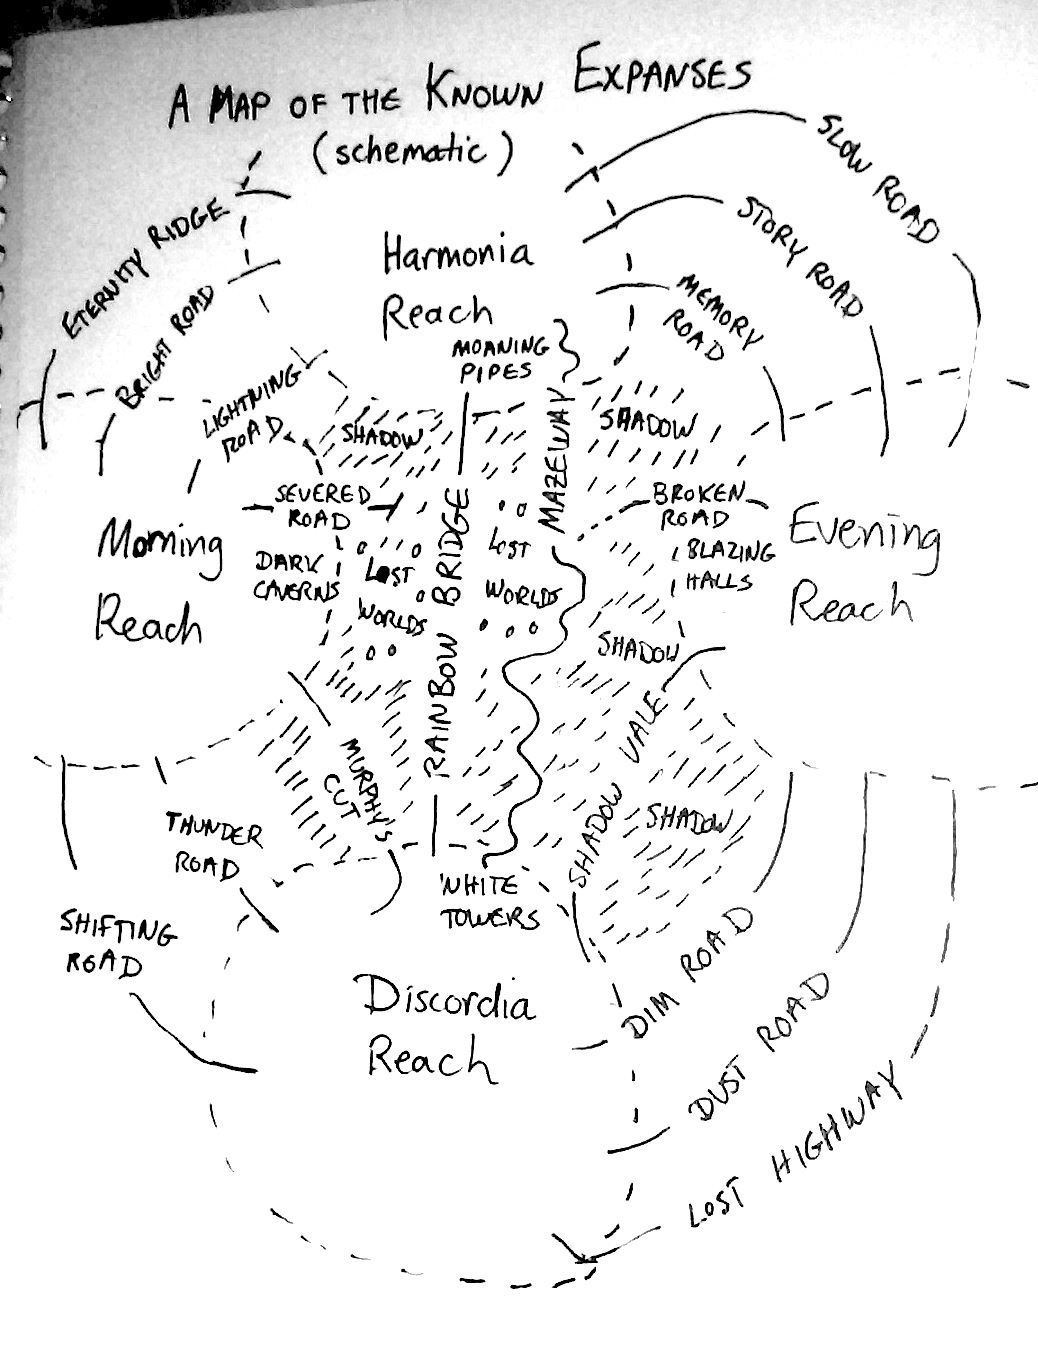 A MAP OF THE KNOWN EXPANSES
(schematic)
SLOW ROAD
STORY ROAD
MEMORY
ROAD
ETERNITY RIDGE
BRIGHT ROAD
LIGHTNING
ROAD
Harmonia
Reach
MOANING
PIPES
SHADOW
SHADOW
MAZEWAY
SEVERED
ROAD
BROKEN
ROAD
Morning
Reach
DARK
CAVERNS
LOST
WORLDS
RAINBOW BRIDGE
LOST
WORLDS
BLAZING
HALLS
Evening
Reach
SHADOW
SHADOW VALE
MURPHY'S
CUT
SHADOW
THUNDER
ROAD
WHITE
TOWERS
SHIFTING
ROAD
Discordia
Reach
DIM ROAD
DUST ROAD
LOST HIGHWAY